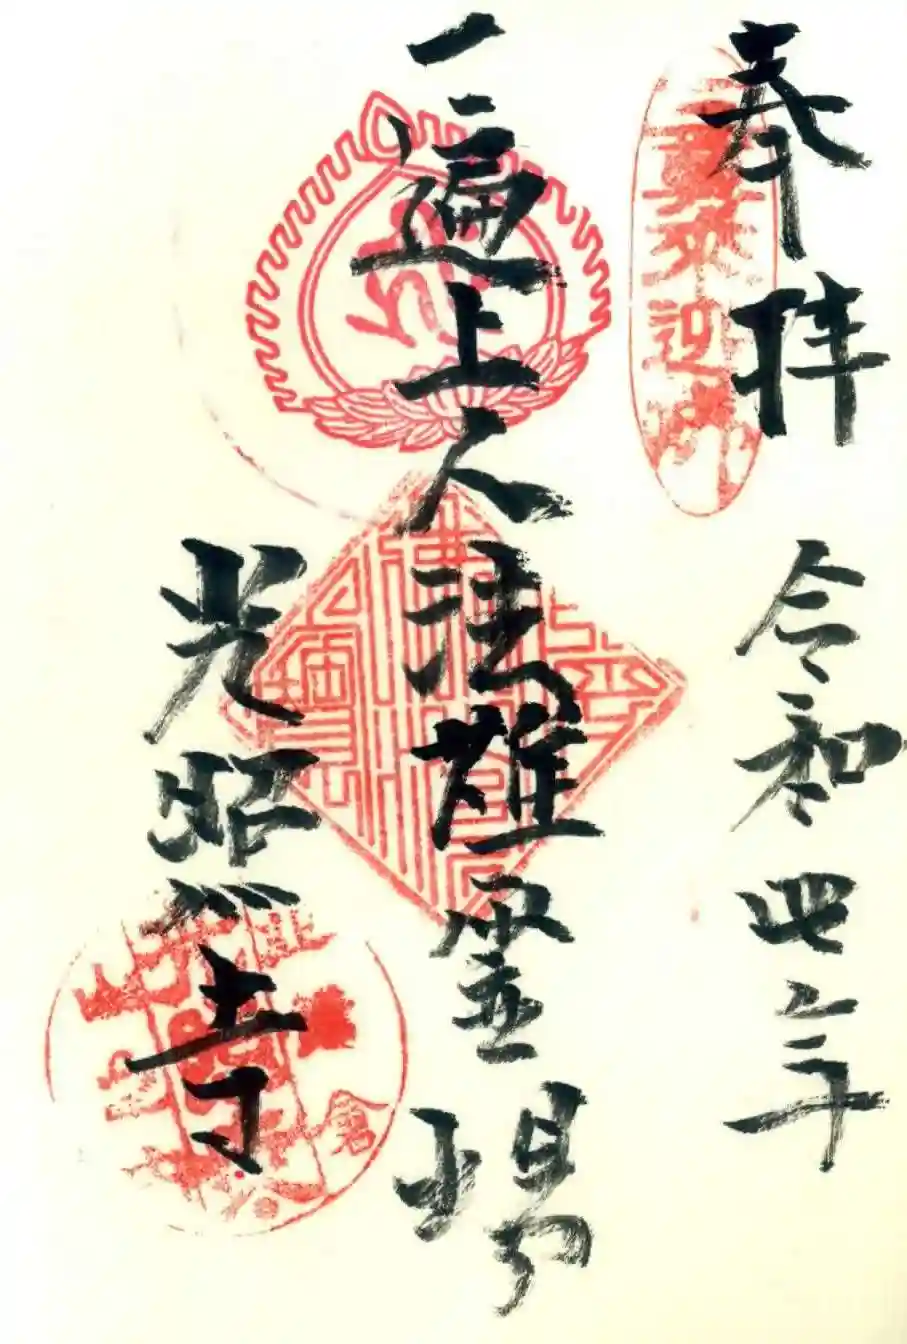 奉拝 令和四年
一遍上人法難霊場
光照寺